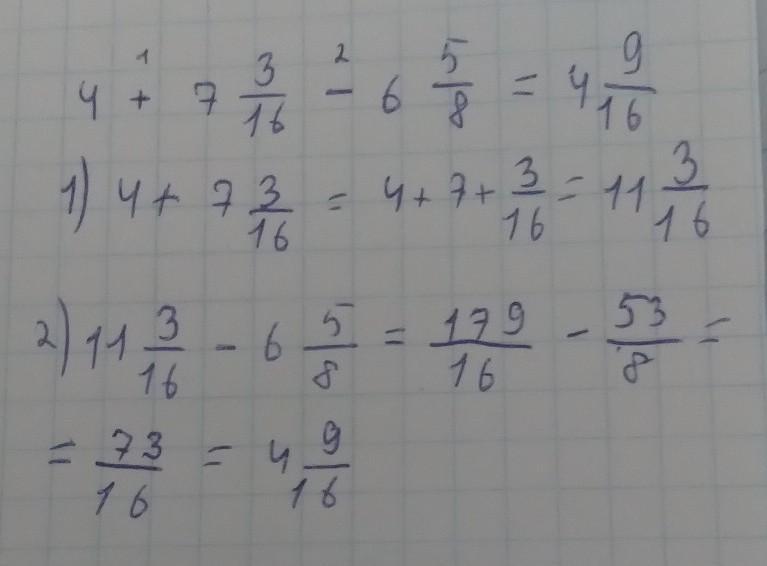 4 +¹ 7 3/16 -² 6 5/8 = 4 9/16
1) 4 + 7 3/16 = 4 + 7 + 3/16 = 11 3/16
2) 11 3/16 - 6 5/8 = 179/16 - 53/8 =
= 73/16 = 4 9/16